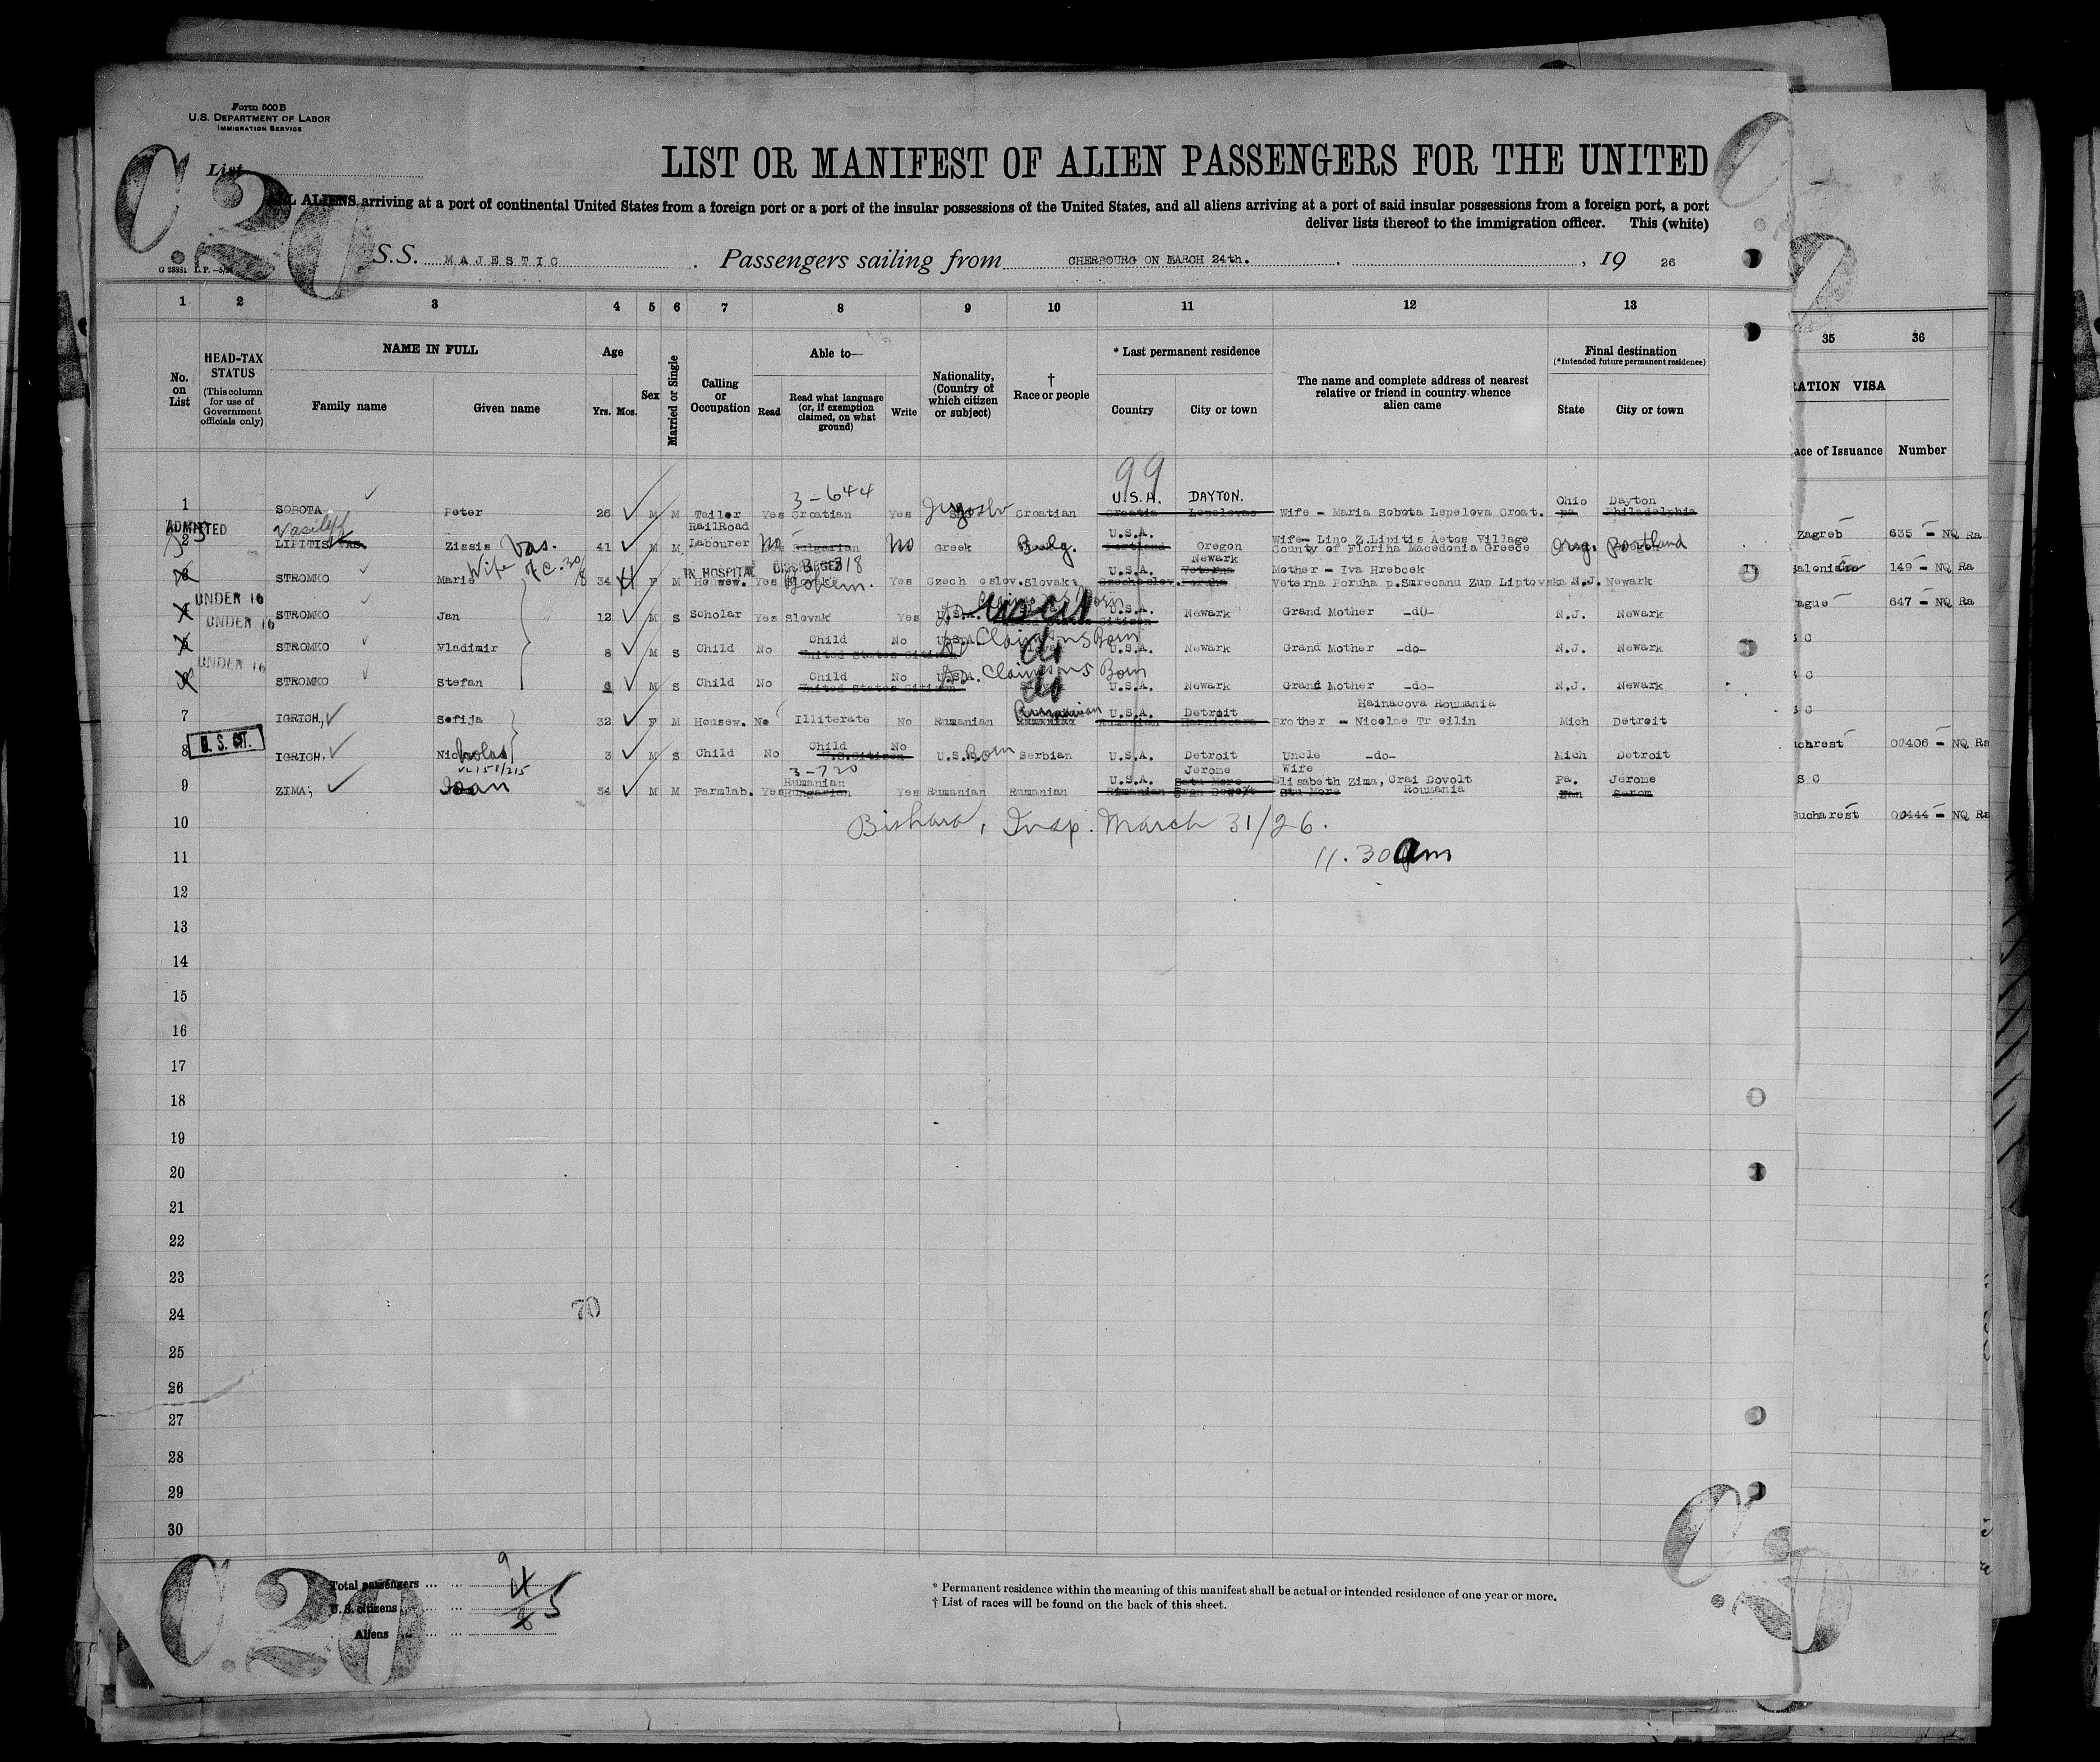 Form 500 B
U.S. DEPARTMENT OF LABOR
IMMIGRATION SERVICE
C.20
List
LIST OR MANIFEST OF ALIEN PASSENGERS FOR THE UNITED
ALL ALIENS arriving at a port of continental United States from a foreign port or a port of the insular possessions of the United States, and all aliens arriving at a port of said insular possessions from a foreign port, a port
deliver lists thereof to the immigration officer. This (white)
S.S. MAJESTIC. Passengers sailing from CHERBOURG ON MARCH 24th. , 19 26
1 2 3 4 5 6 7 8 9 10 11 12 13 35 36
No. on List
HEAD-TAX STATUS (This column for use of Government officials only)
NAME IN FULL
Family name Given name
Age
Yrs. Mos.
Sex
Married or Single
Calling or Occupation
Able to—
Read
Read what language (or, if exemption claimed, on what ground)
Write
Nationality, (Country of which citizen or subject)
† Race or people
* Last permanent residence
Country City or town
The name and complete address of nearest relative or friend in country whence alien came
Final destination
(*Intended future permanent residence)
State City or town
RATION VISA
ace of Issuance Number
99
3-644 U.S.A. DAYTON. Ohio Dayton
1 SOBOTA Peter 26 M M Tailor Yes Croatian Yes Jugoslv Croatian Croatia Lepelovac Wife - Maria Sobota Lepelova Croat. pa Philadelphia
ADMITTED
Vasileff RailRoad U.S.A. Wife- Lino Z.Lipitis Aetos Village
2 LIPITIS VAS. Zissis Vas. 41 M M Labourer No Bulgarian No Greek Bulg. Portland Oregon County of Florina Macedonia Greece Org. Portland
Zagreb 635 - NQ Ra
Wife of C.30/8 IN HOSPITAL DISCHARGED Newark
U.S.A. Veterna Mother - Iva Hrebcek
STROMKO Marie 34 F M Housew. Yes Yes Czech oslov. Slovak Czechoslov. Poruha Veterna Poruha p.Surecanu Zup Liptovska N.J. Newark
149 - NQ Ra
UNDER 16
STROMKO Jan 12 M S Scholar Yes Slovak Yes U.S.A. U.S.A. Newark Grand Mother -do- N.J. Newark
ague 647 - NQ Ra
UNDER 16
Child No U.S.A. Claims US Born
STROMKO Vladimir 8 M S Child No United States Citizen do U.S.A. Newark Grand Mother -do- N.J. Newark
S C
UNDER 16
Child No U.S.A. Claims US Born
STROMKO Stefan M S Child No United States Citizen do U.S.A. Newark Grand Mother -do- N.J. Newark
S C
Rumanian U.S.A. Detroit Hainacova Roumania
7 IGRICH, Sofija 32 F M Housew. No Illiterate No Rumanian Rumanian Rumanian Brother - Nicolae Tr eilin Mich Detroit
S C
U. S. CIT.
Child No
8 IGRICH, Nicholas 3 M S Child No U.S.Citizen U.S. Born Serbian U.S.A. Detroit Uncle -do- Mich Detroit
ucharest 02406 - NQ Ra
3-720 Jerome Wife
Rumanian U.S.A. Satu More Elisabeth Zima, Crai Dovolt Pa. Jerome
9 ZIMA, Ioan 34 M M Farmlab. Yes Hungarian Yes Rumanian Rumanian Rumanian Stu More Roumania
S C
10 Bishara, Insp. March 31/26.
Bucharest 444 - NQ Ra
11 11.30 am
12
13
14
15
16
17
18
19
20
21
22
23
24 70
25
26
27
28
29
30
Total passengers ... 9
U.S. citizens ...
Aliens ...
* Permanent residence within the meaning of this manifest shall be actual or intended residence of one year or more.
† List of races will be found on the back of this sheet.
C.20